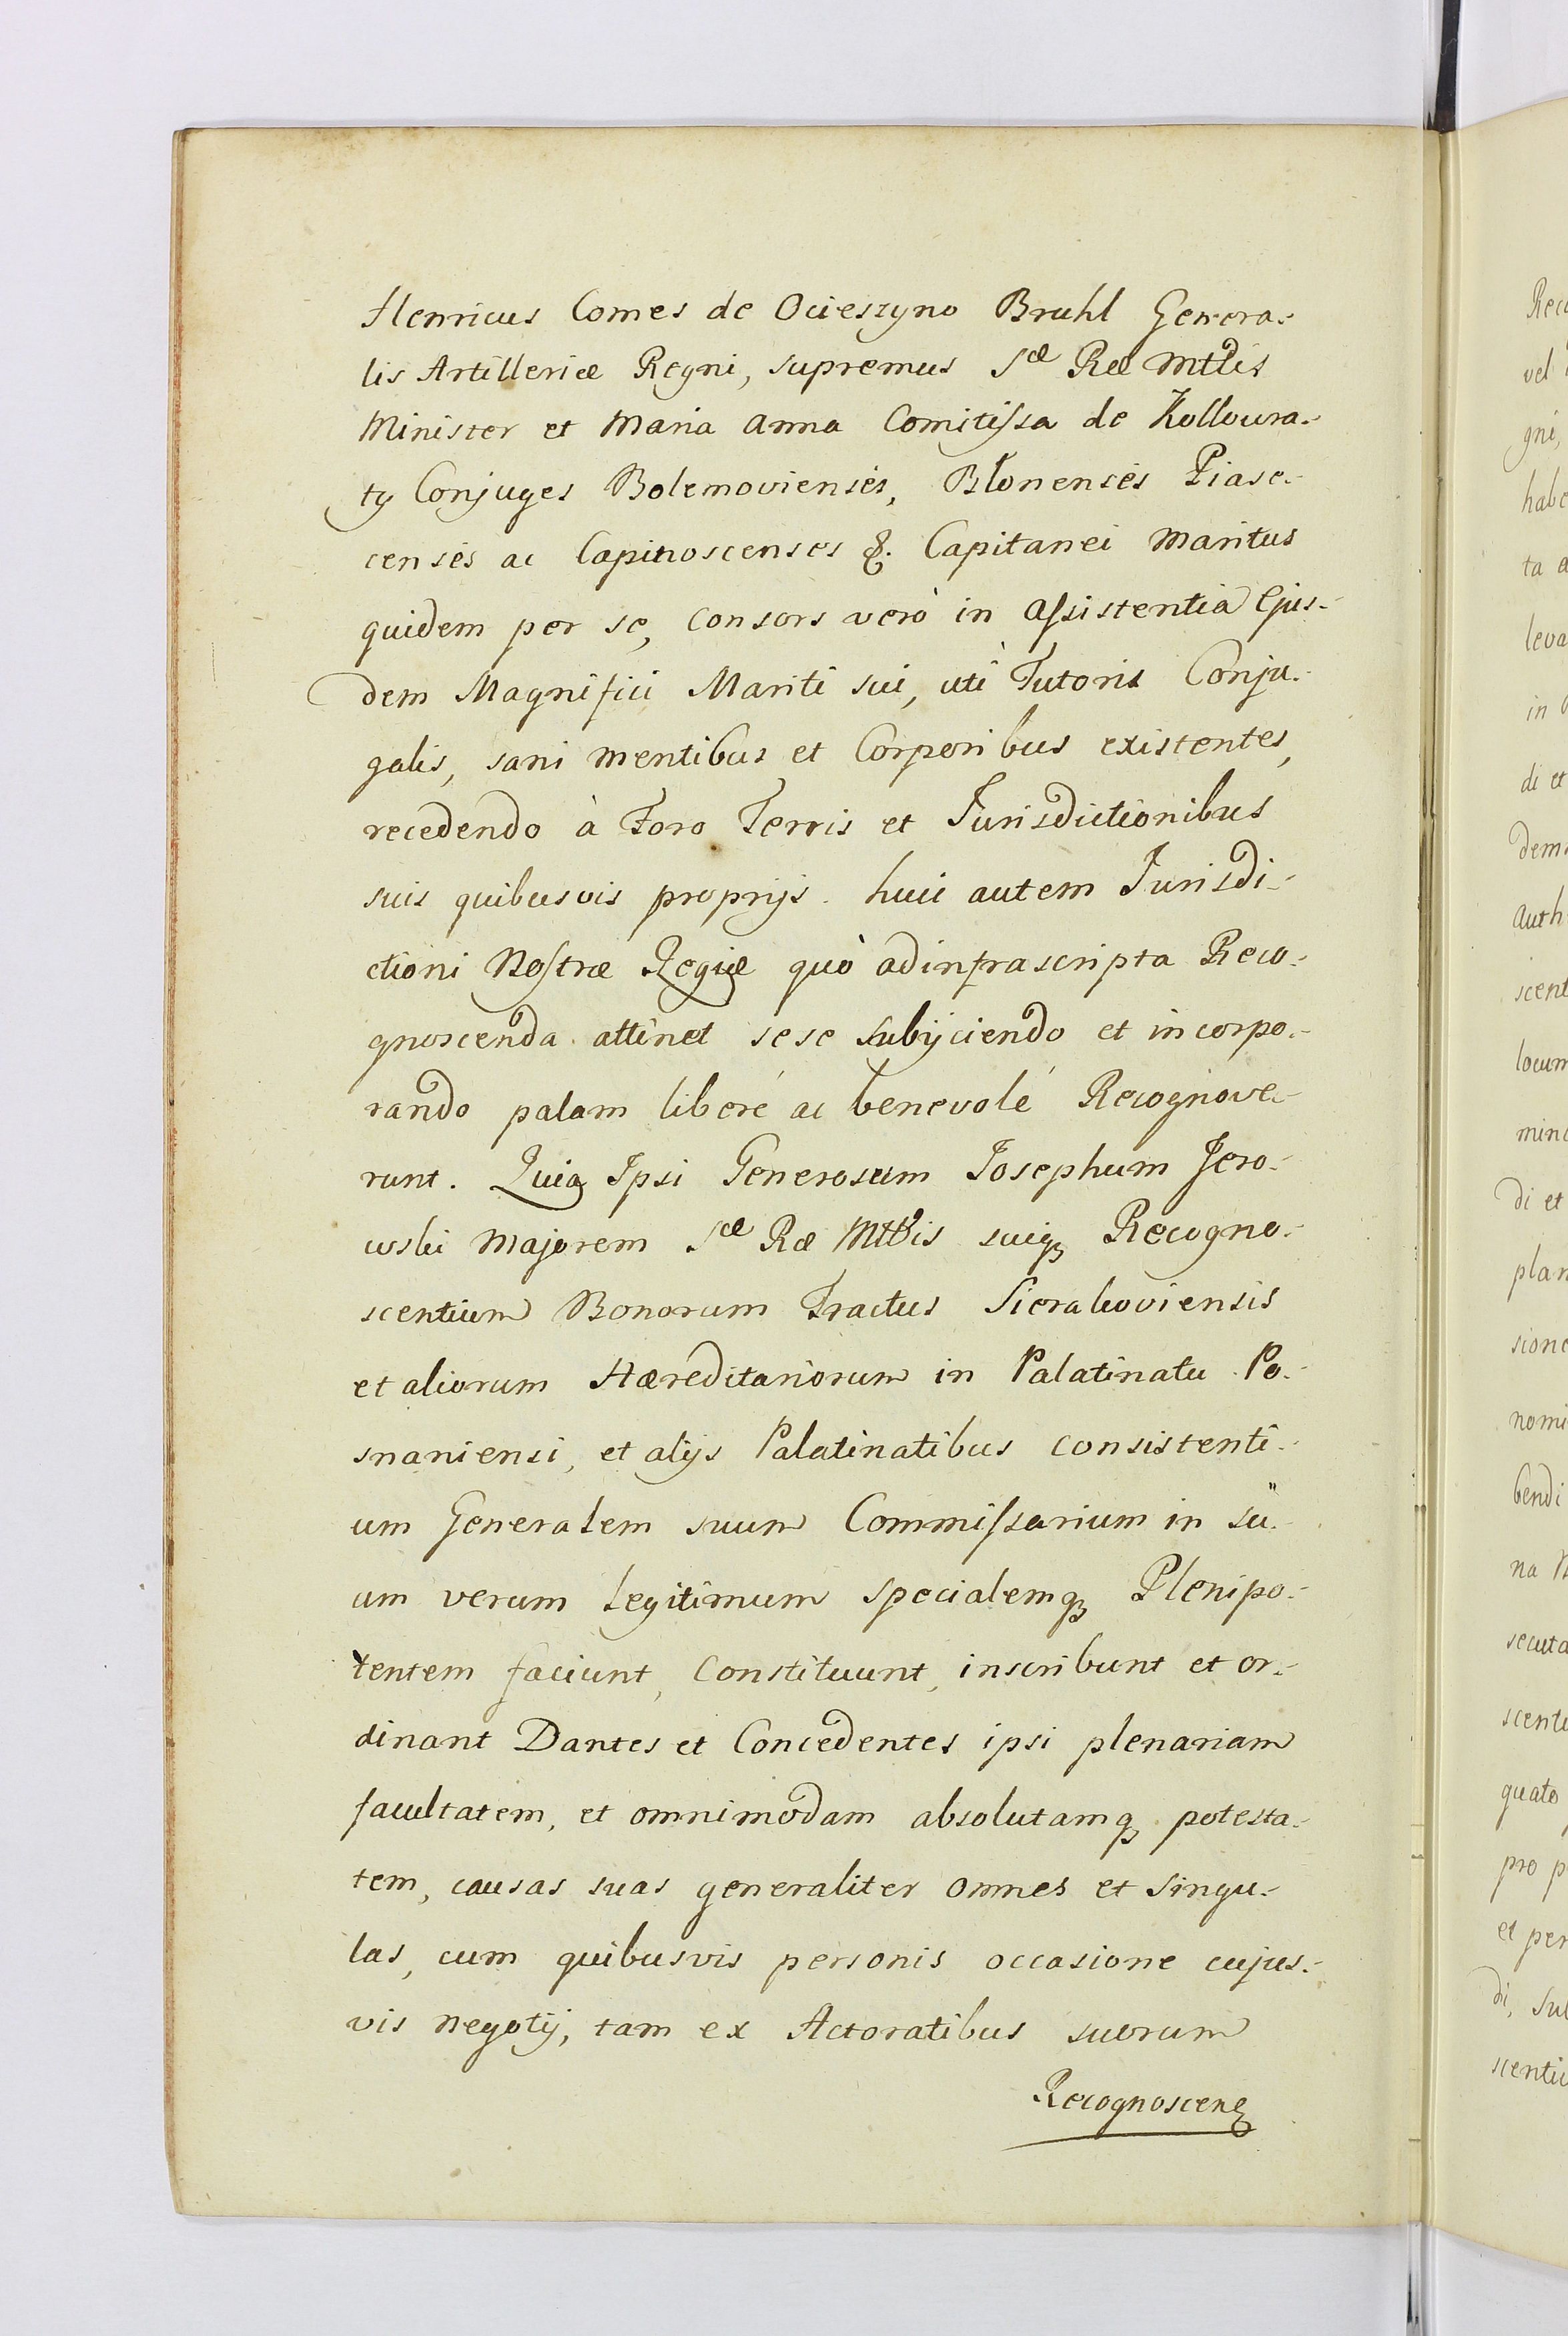 Henricus Comes de Ocieszyno Bruhl Genera-
lis Artilleriæ Regni, supremus Sæ Ræ Mttis
Minister et Maria Anna Comitissa de Kolloura-
ty Conjuges Bolemovienses, Blonenses Piase-
censes ac Capinoscenses &. Capitanei Maritus
quidem per se, Consors verò in Assistentia Ejus-
dem Magnifici Mariti sui, uti Tutoris Conju-
galis, sani mentibus et Corporibus existentes,
recedendo à Foro Terris et Jurisdictionibus
suis quibusvis proprijs. huic autem Jurisdi-
ctioni Nostræ Regiæ quò ad infrascripta Reco-
gnoscenda attinet sese subijciendo et incorpo-
rando palam liberé ac benevolé Recognove-
runt. Quia Ipsi Generosum Josephum Jero-
wski Majorem Sæ Ræ Mttis suiq Recogno-
scentium Bonorum Tractus Sierakoviensis
et aliorum Hæreditariorum in Palatinatu Po-
snaniensi, et alijs Palatinatibus consistenti-
um Generalem suum Commissarium in su-
um verum legitimum specialemq Plenipo-
tentem faciunt, Constituunt, inscribunt et or-
dinant Dantes et Concedentes ipsi plenariam
facultatem, et omnimodam absolutamq potesta-
tem, causas suas generaliter omnes et singu-
las, cum quibusvis personis occasione cujus-
vis negotij, tam ex Actoratibus suorum
Recognoscen